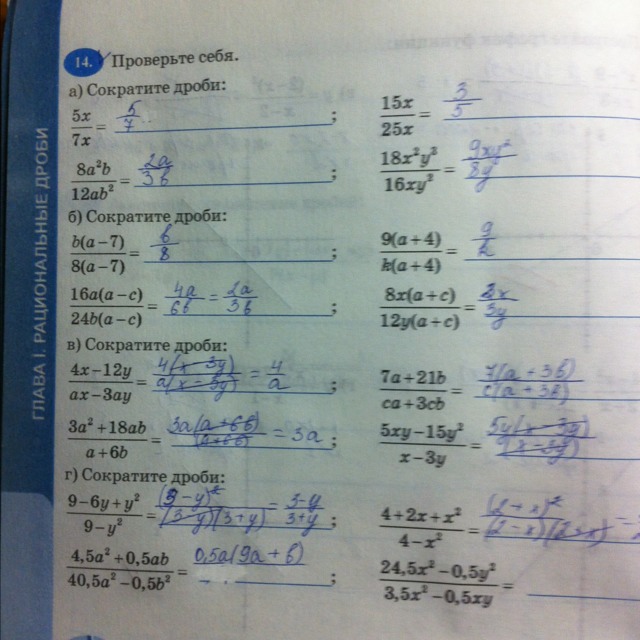 14. Проверьте себя.
а) Сократите дроби:
5x/7x = 5/7; 15x/25x = 3/5
8a²b/12ab² = 2a/3b; 18x²y³/16xy² = 9xy²/8y
б) Сократите дроби:
b(a−7)/8(a−7) = b/8; 9(a+4)/k(a+4) = 9/k
16a(a−c)/24b(a−c) = 4a/6b = 2a/3b; 8x(a+c)/12y(a+c) = 2x/3y
в) Сократите дроби:
4x−12y/ax−3ay = 4(x−3y)/a(x−3y) = 4/a; 7a+21b/ca+3cb = 7(a+3b)/c(a+3b)
3a²+18ab/a+6b = 3a(a+6b)/(a+6b) = 3a; 5xy−15y²/x−3y = 5y(x−3y)/(x−3y)
г) Сократите дроби:
9−6y+y²/9−y² = (3−y)²/(3−y)(3+y) = 3−y/3+y; 4+2x+x²/4−x² = (2+x)²/(2−x)(2+x) =
4,5a²+0,5ab/40,5a²−0,5b² = 0,5a(9a+b); 24,5x²−0,5y²/3,5x²−0,5xy =
ГЛАВА I. РАЦИОНАЛЬНЫЕ ДРОБИ